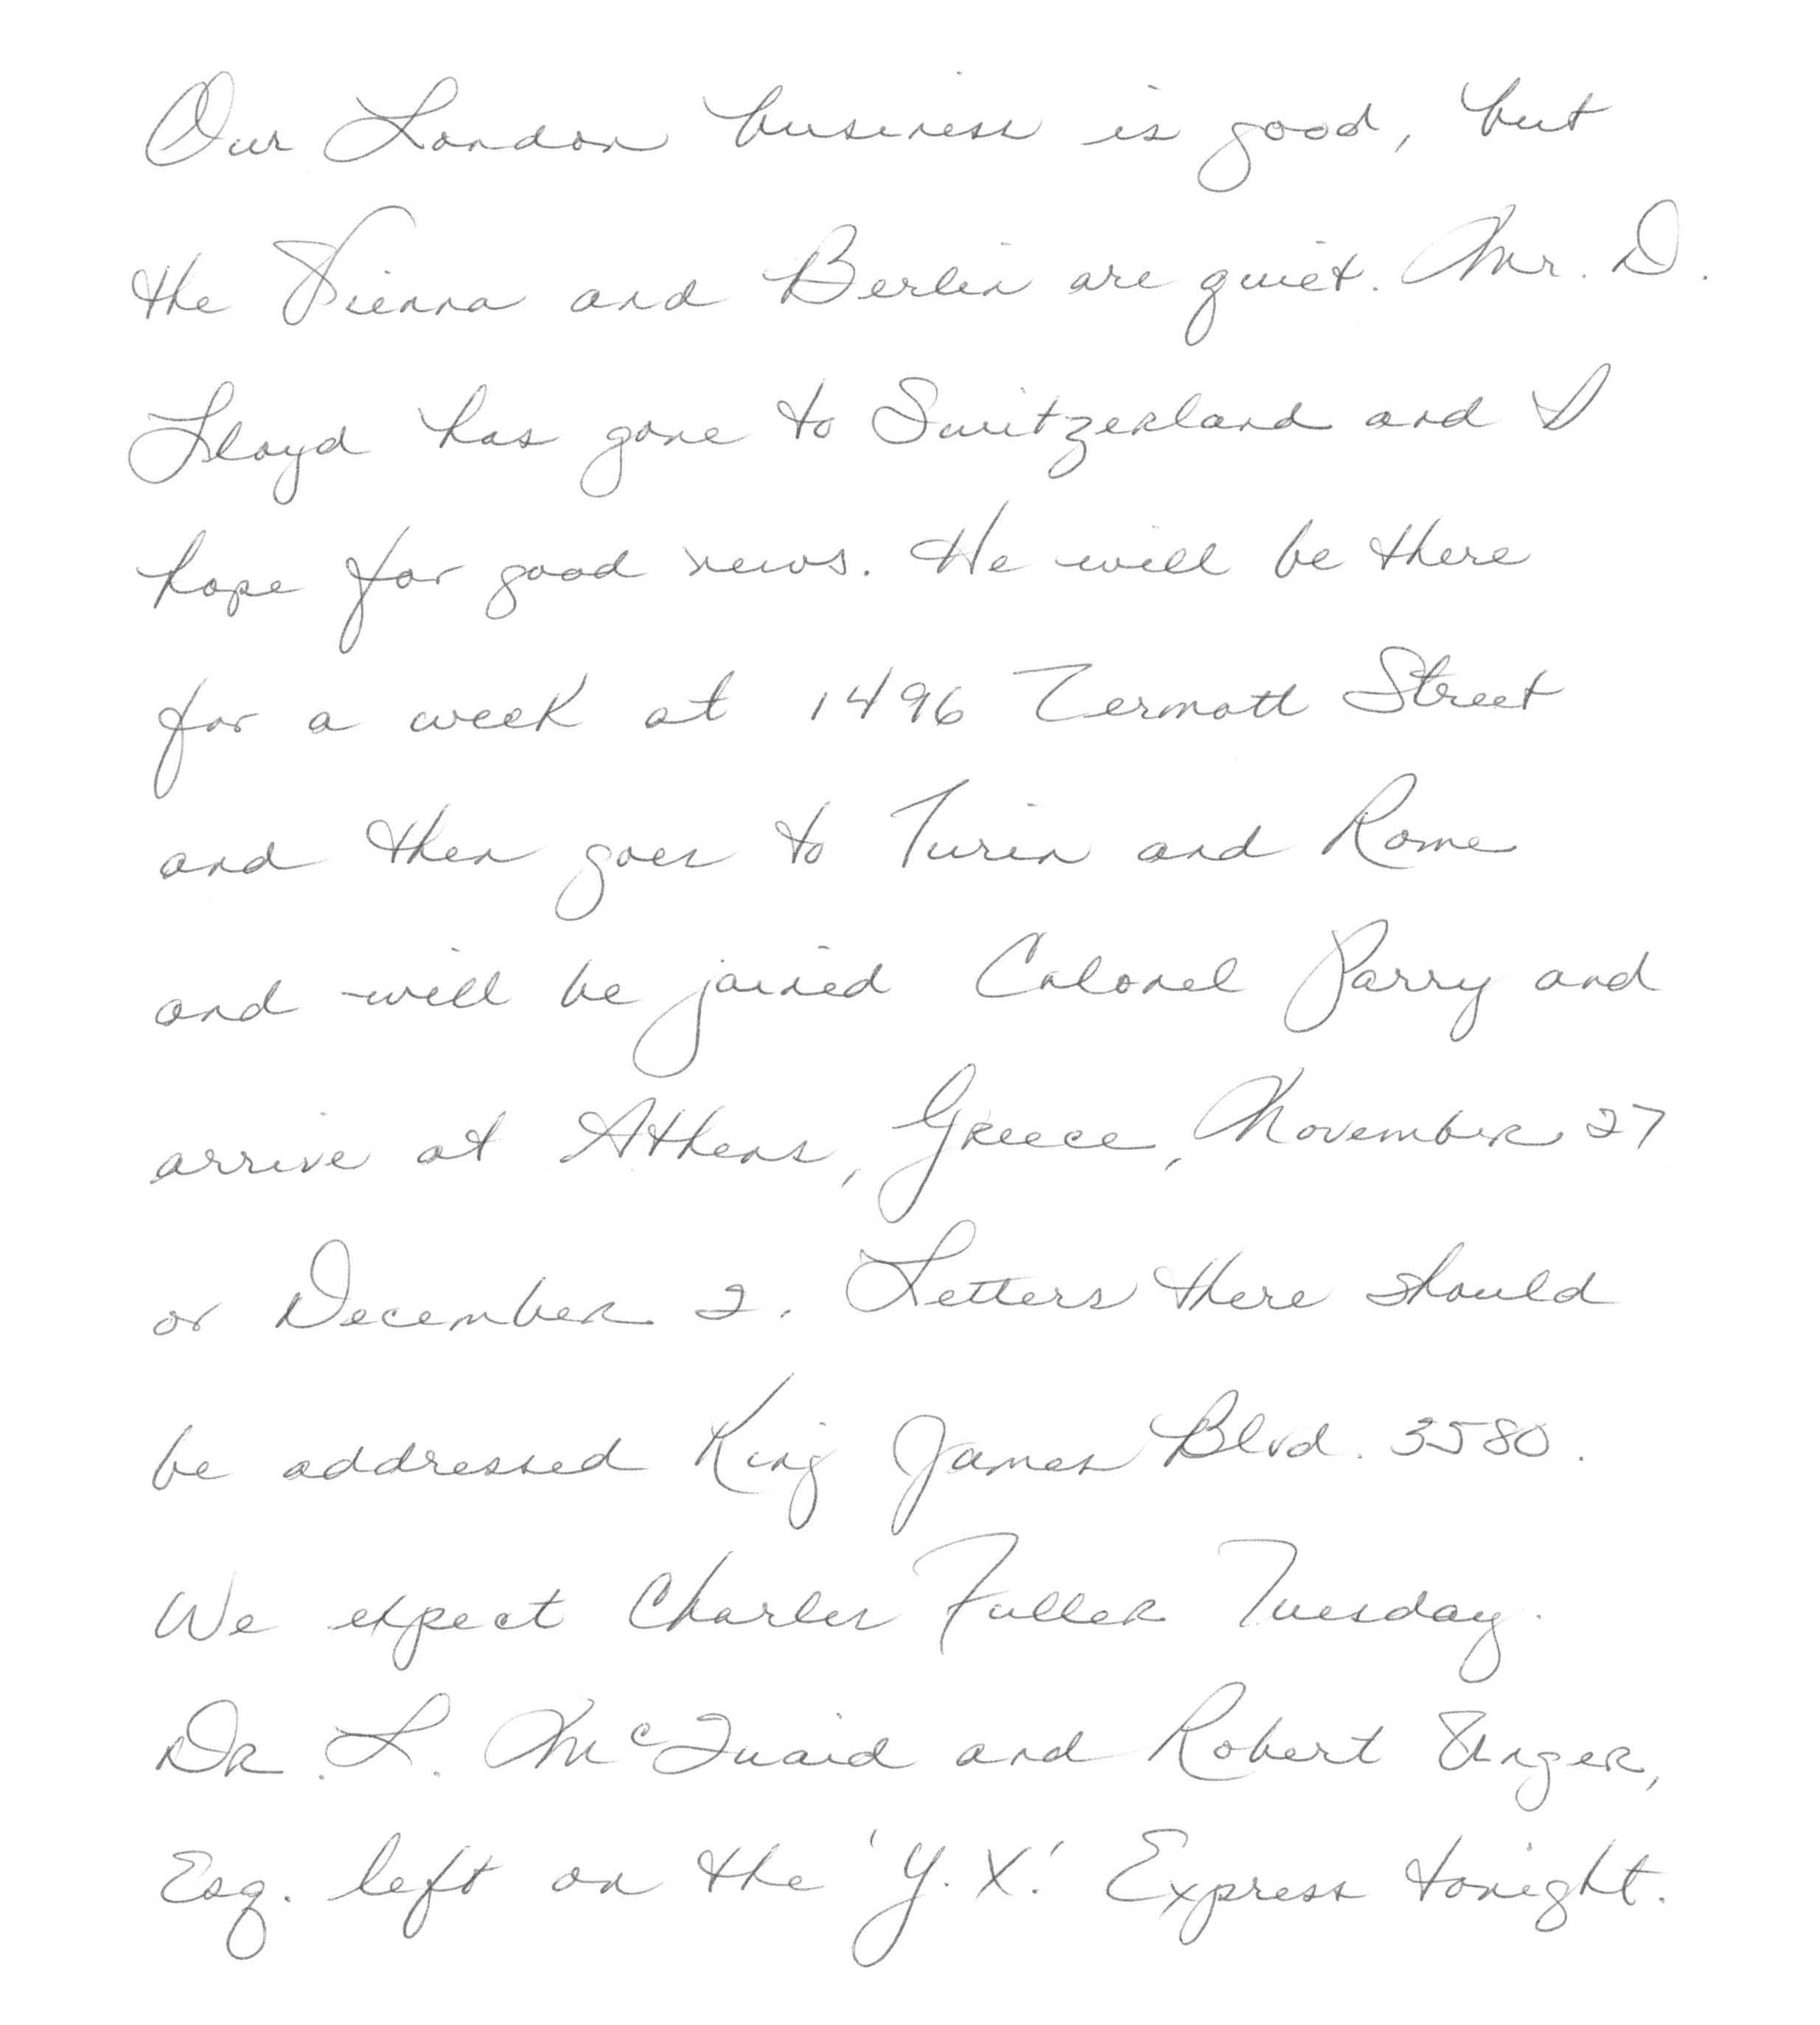 Our London business is good, but
the Vienna and Berlin are quiet. Mr. D.
Lloyd has gone to Switzerland and I
hope for good news. He will be there
for a week at 1496 Zermott Street
and then goes to Turin and Rome
and will be joined Colonel Parry and
arrive at Athens, Greece, November 27
or December 2. Letters there should
be addressed King James Blvd. 3580.
We expect Charles Fuller Tuesday.
Dr. L. McQuaid and Robert Unger,
Esq. left on the 'Y. X.' Express tonight.